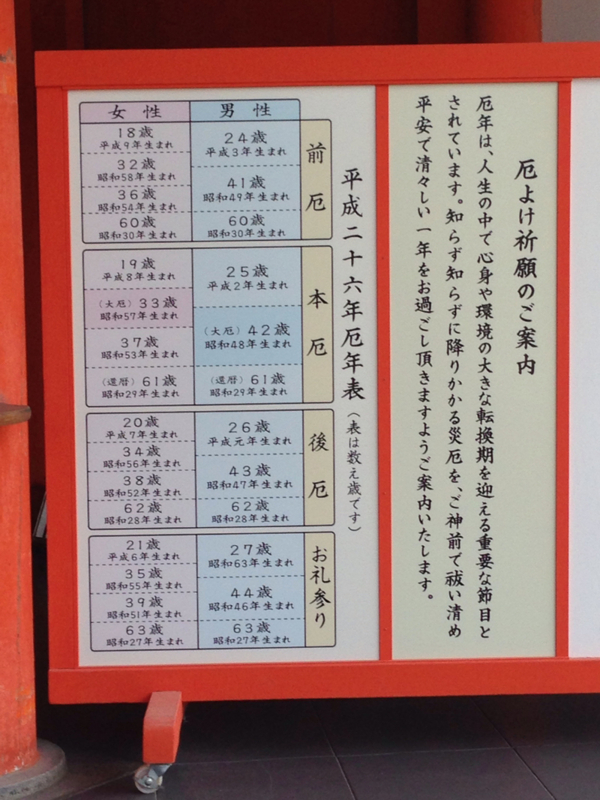 厄よけ祈願のご案内
厄年は、人生の中で心身や環境の大きな転換期を迎える重要な節目と
されています。知らず知らずに降りかかる災厄を、ご神前で祓い清め
平安で清々しい一年をお過ごし頂きますようご案内いたします。
平成二十六年厄年表(表は数え歳です)
女性 男性
前厄
24歳
平成3年生まれ
41歳
昭和49年生まれ
60歳
昭和30年生まれ
18歳
平成9年生まれ
32歳
昭和58年生まれ
36歳
昭和54年生まれ
60歳
昭和30年生まれ
本厄
25歳
平成2年生まれ
(大厄)42歳
昭和48年生まれ
(還暦)61歳
昭和29年生まれ
19歳
平成8年生まれ
(大厄)33歳
昭和57年生まれ
37歳
昭和53年生まれ
(還暦)61歳
昭和29年生まれ
後厄
26歳
平成元年生まれ
43歳
昭和47年生まれ
62歳
昭和28年生まれ
20歳
平成7年生まれ
34歳
昭和56年生まれ
38歳
昭和52年生まれ
62歳
昭和28年生まれ
お礼参り
27歳
昭和63年生まれ
44歳
昭和46年生まれ
63歳
昭和27年生まれ
21歳
平成6年生まれ
35歳
昭和55年生まれ
39歳
昭和51年生まれ
63歳
昭和27年生まれ